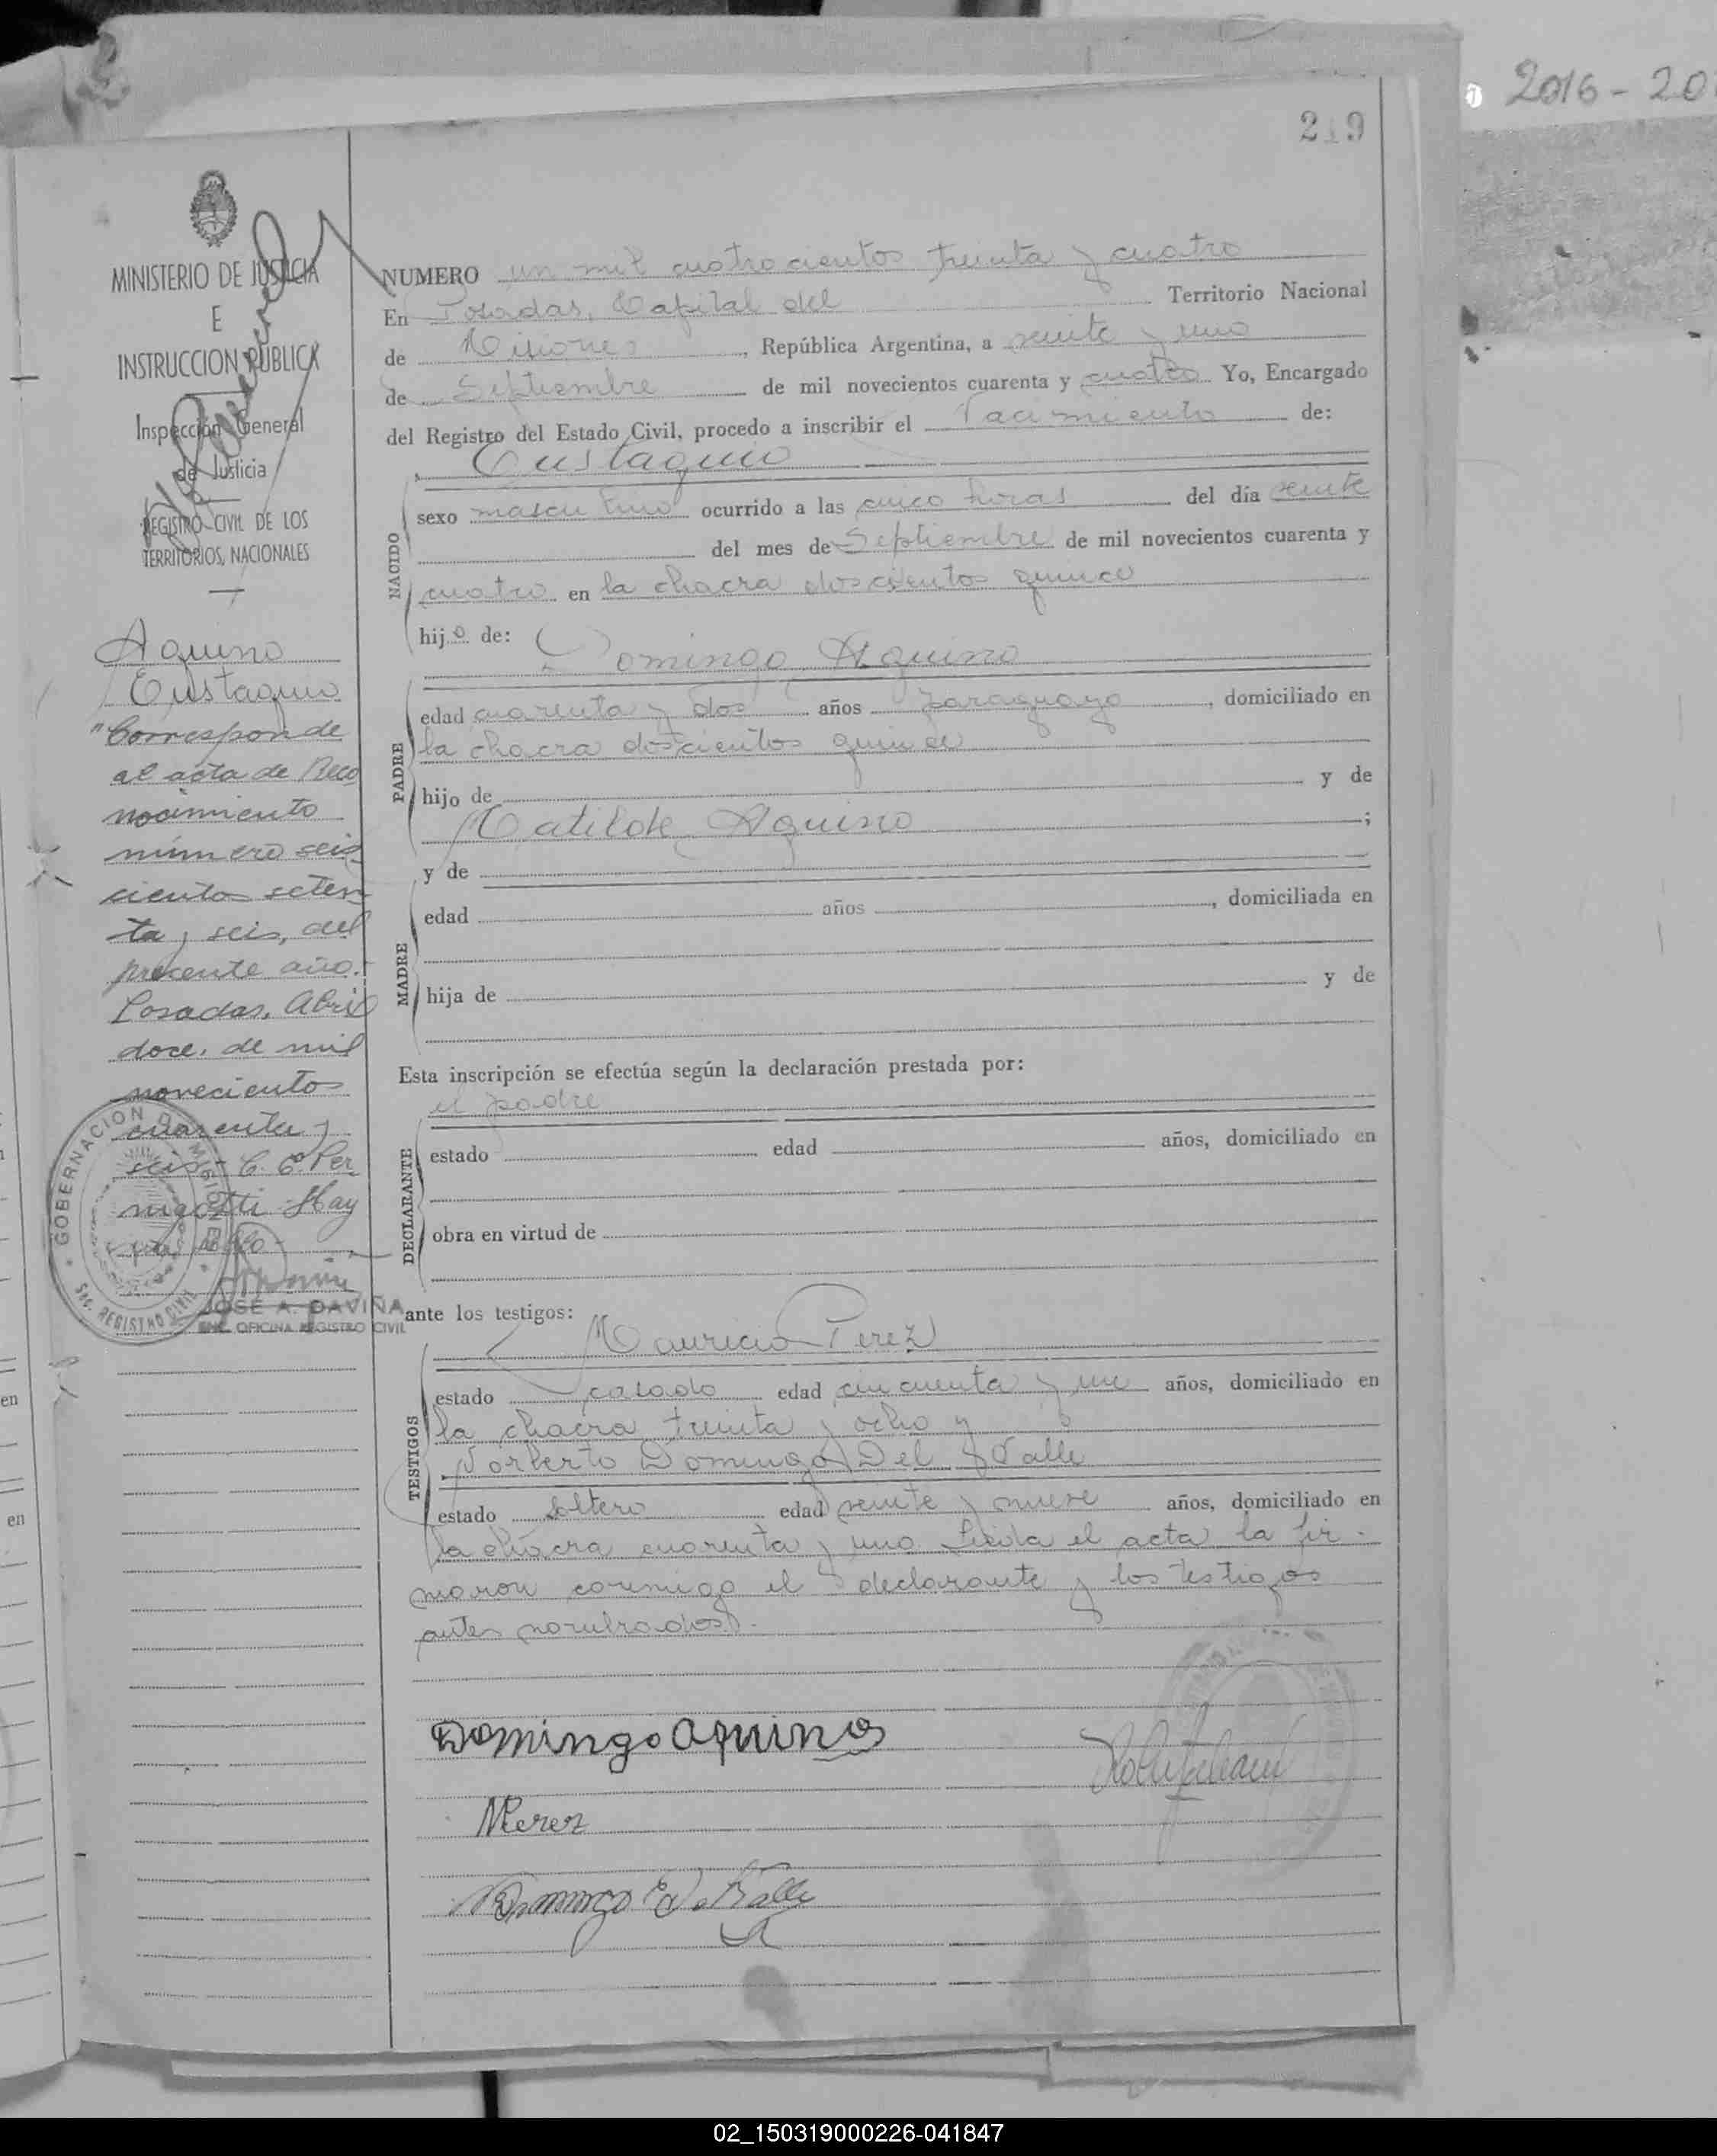 2016-20
219
MINISTERIO DE JUSTICIA
E
INSTRUCCION PUBLICA
Inspección General
de Justicia
REGISTRO CIVIL DE LOS
TERRITORIOS NACIONALES
Aquino
Eustaquio
"Corresponde
al acta de Reco
nocimiento
número seis
cientos seten
ta y seis, del
presente año.
Posadas, Abril
doce, de mil
novecientos
cuarenta y
seis - C. C. Per
nigotti - Hay
GOBERNACION DE MISIONES
SEC. REGISTRO CIVIL
JOSE A. DAVIÑA
ENC. OFICINA REGISTRO CIVIL
NUMERO un mil cuatrocientos treinta y cuatro
En Posadas, Capital del Territorio Nacional
de Misiones, República Argentina, a veinte y uno
de Septiembre de mil novecientos cuarenta y cuatro Yo, Encargado
del Registro del Estado Civil, procedo a inscribir el Nacimiento de:
Eustaquio
NACIDO
sexo masculino ocurrido a las cinco horas del día veinte
del mes de Septiembre de mil novecientos cuarenta y
cuatro en la chacra doscientos quince
hijo de:
Domingo Aquino
PADRE
edad cuarenta y dos años paraguayo, domiciliado en
la chacra doscientos quince
hijo de y de
Matilde Aquino;
y de
MADRE
edad años, domiciliada en
hija de y de
Esta inscripción se efectúa según la declaración prestada por:
el padre
DECLARANTE
estado edad años, domiciliado en
obra en virtud de
ante los testigos:
Mauricio Perez
TESTIGOS
estado casado edad cincuenta y un años, domiciliado en
la chacra treinta y ocho y
Norberto Domingo Del Valle
estado soltero edad veinte y nueve años, domiciliado en
la chacra cuarenta y uno. Leida el acta la fir-
maron conmigo el declarante y los testigos
antes nombrados.
Domingo Aquino
MPerez
02_150319000226-041847